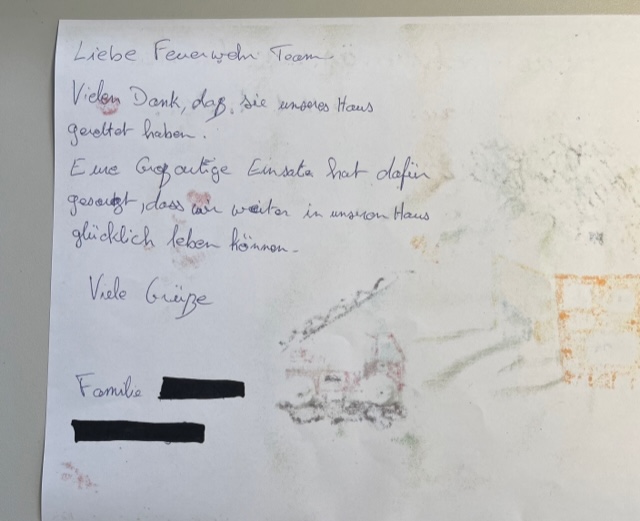 Liebe Feuerwehr Team
Vielen Dank, daß sie unseres Haus
gerettet haben.
Eure Großartige Einsatz hat dafür
gesorgt, dass wir weiter in unseren Haus
glücklich leben können.
Viele Grüße
Familie